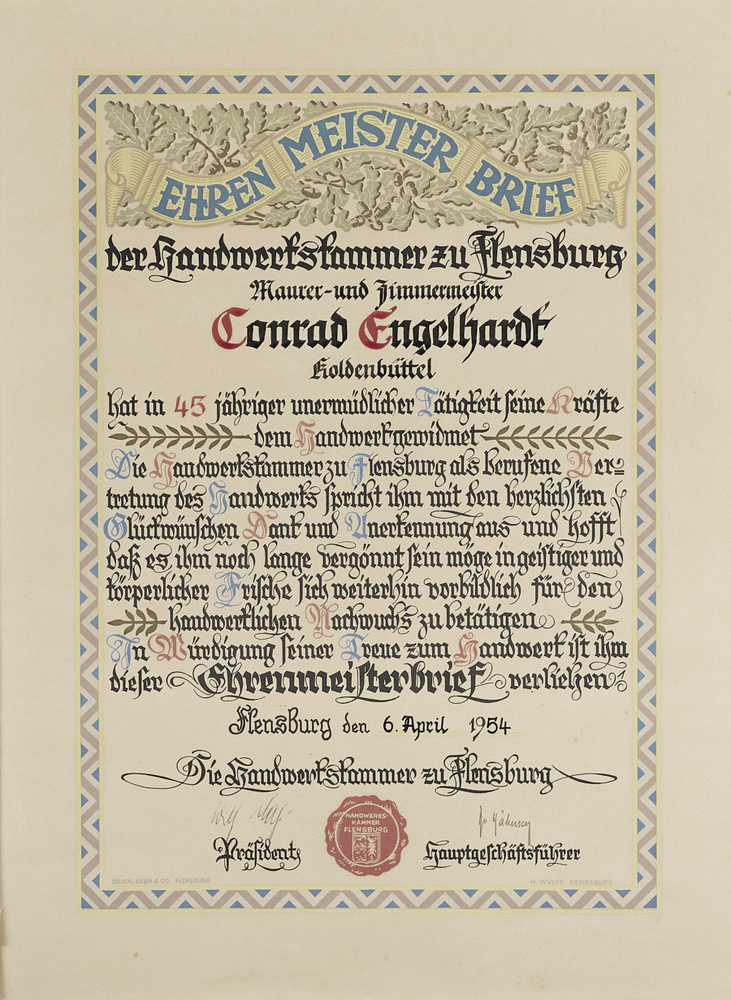 EHREN MEISTER BRIEF
der Handwerkskammer zu Flensburg
Maurer- und Zimmermeister
Conrad Engelhardt
Koldenbüttel
hat in 45 jähriger unermüdlicher Tätigkeit seine Kräfte
dem Handwerk gewidmet
Die Handwerkskammer zu Flensburg als berufene Ver=
tretung des Handwerks spricht ihm mit den herzlichsten
Glückwünschen Dank und Anerkennung aus und hofft
daß es ihm noch lange vergönnt sein möge in geistiger und
körperlicher Frische sich weiterhin vorbildlich für den
handwerklichen Nachwuchs zu betätigen
In Würdigung seiner Treue zum Handwerk ist ihm
dieser Ehrenmeisterbrief verliehen
Flensburg den 6. April 1954
Die Handwerkskammer zu Flensburg
HANDWERKS-
KAMMER
FLENSBURG
Präsident Hauptgeschäftsführer
& CO. FLENSBURG H. WULFF RENDSBURG